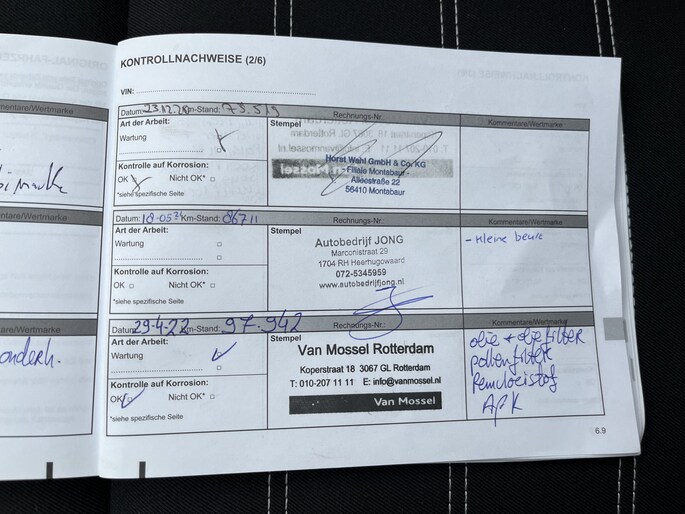 KONTROLLNACHWEISE (2/6)
VIN:
Datum: 23.12. Km-Stand: 79.519
Rechnungs-Nr.
Kommentare/Wertmarke
Art der Arbeit:
Wartung
Stempel
Horst Wahl GmbH & Co. KG
Filiale Montabaur
Alleestraße 22
56410 Montabaur
Kontrolle auf Korrosion:
OK Nicht OK*
*siehe spezifische Seite
Datum: 18-05 Km-Stand: 86711
Rechnungs-Nr.
Kommentare/Wertmarke
Art der Arbeit:
Wartung
Stempel
Autobedrijf JONG
Marconistraat 29
1704 RH Heerhugowaard
072-5345959
www.autobedrijfjong.nl
- Kleine beurt
Kontrolle auf Korrosion:
OK Nicht OK*
*siehe spezifische Seite
Datum: 29-4-22 Km-Stand: 97.942
Rechnungs-Nr.:
Kommentare/Wertmarke
Art der Arbeit:
Wartung
Stempel
Van Mossel Rotterdam
Koperstraat 18 3067 GL Rotterdam
T: 010-207 11 11 E: info@vanmossel.nl
Van Mossel
olie + oliefilter
pollenfilter
Remvloeistof
APK
Kontrolle auf Korrosion:
OK Nicht OK*
*siehe spezifische Seite
6.9
mentare/Wertmarke
mentare/Wertmarke
entare/Wertmarke
onderh.